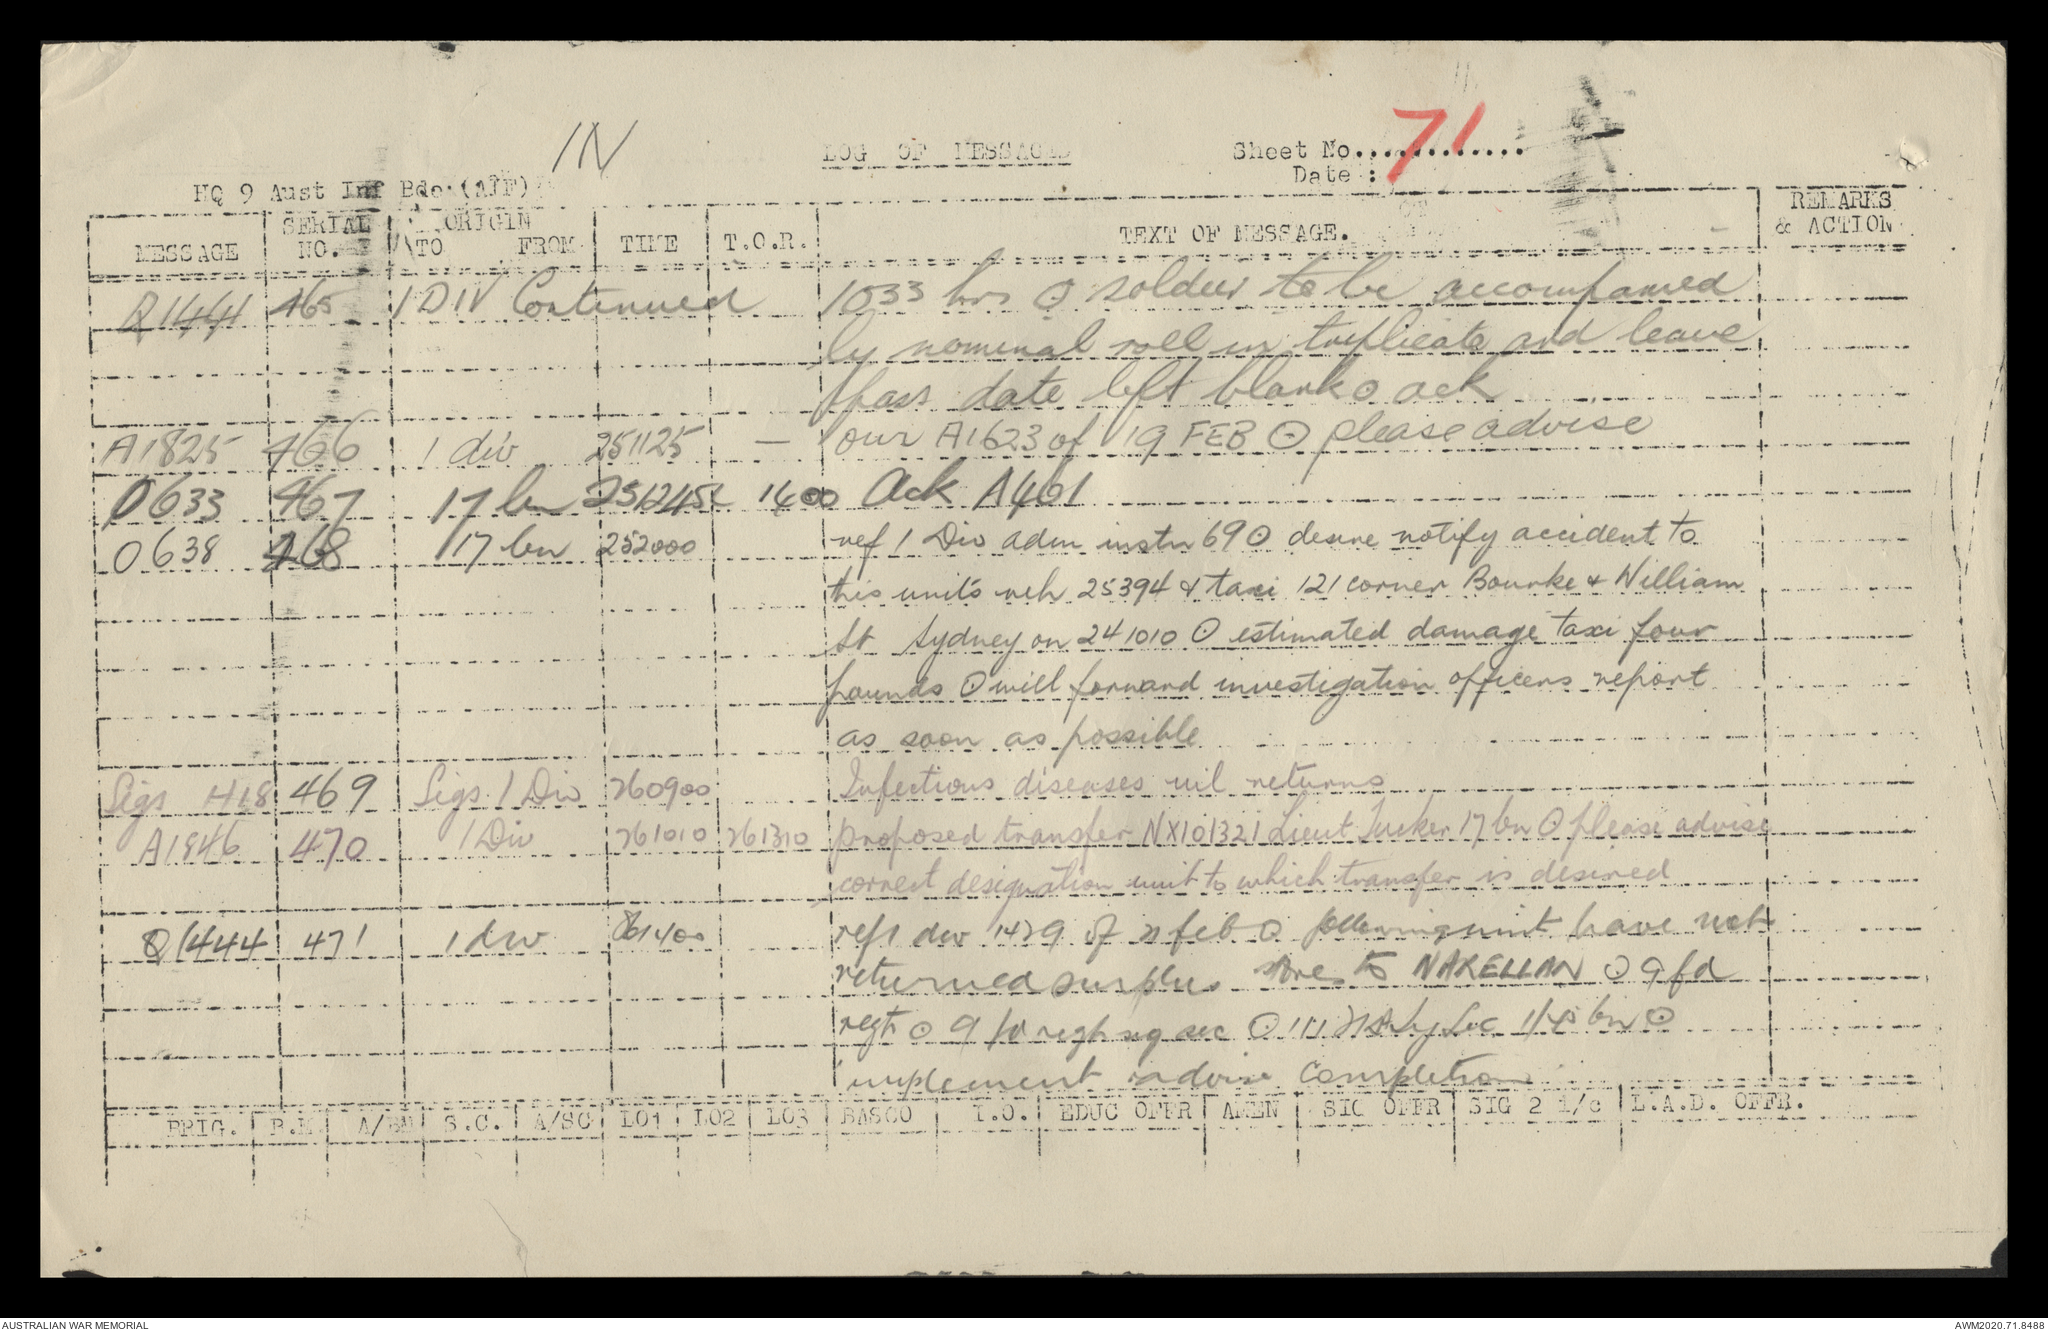 IN
LOG OF MESSAGES
Sheet No.............. 71
Date :
HQ 9 Aust Inf Bde (AIF)
MESSAGE SERIAL NO. ORIGIN TO FROM TIME T.O.R. TEXT OF MESSAGE. REMARKS & ACTION
Q1441 465 1 DIV Continued 1033 hrs ⊙ soldier to be accompanied
by nominal roll in triplicate and leave
pass date left blank ⊙ ack
A1825 466 1 div 251125 — our A1623 of 19 FEB ⊙ please advise
O633 467 17 bn 251245 1400 Ack A461
O638 468 17 bn 252000 ref 1 Div adm instn 69 ⊙ desire notify accident to
this units veh 25394 & taxi 121 corner Bourke & William
St Sydney on 241010 ⊙ estimated damage taxi four
pounds ⊙ will forward investigation officers report
as soon as possible
Sigs H18 469 Sigs 1 Div 260900 Infectious diseases nil returns
A1846 470 1 Div 261010 261310 proposed transfer NX101321 Lieut Tucker 17 bn ⊙ please advise
correct designation unit to which transfer is desired
Q1444 471 1 div 261400 ref 1 div 1429 of 21 feb ⊙ following unit have not
returned surplus stores to NARELLAN ⊙ 9 fd
regt ⊙ 9 fd regt sig sec ⊙ 111 1/45 bn ⊙
implement & advise completion
BRIG. B.M. A/BM S.C. A/SC LO1 LO2 LO3 BASCO I.O. EDUC OFFR AMEN SIG OFFR SIG 2 i/c L.A.D. OFFR.
AUSTRALIAN WAR MEMORIAL
AWM2020.71.8488